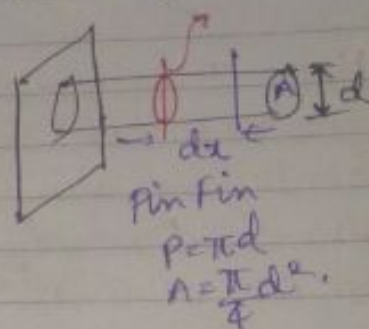 A
d
dx
Pin Fin
P = πd
A = π/4 d².